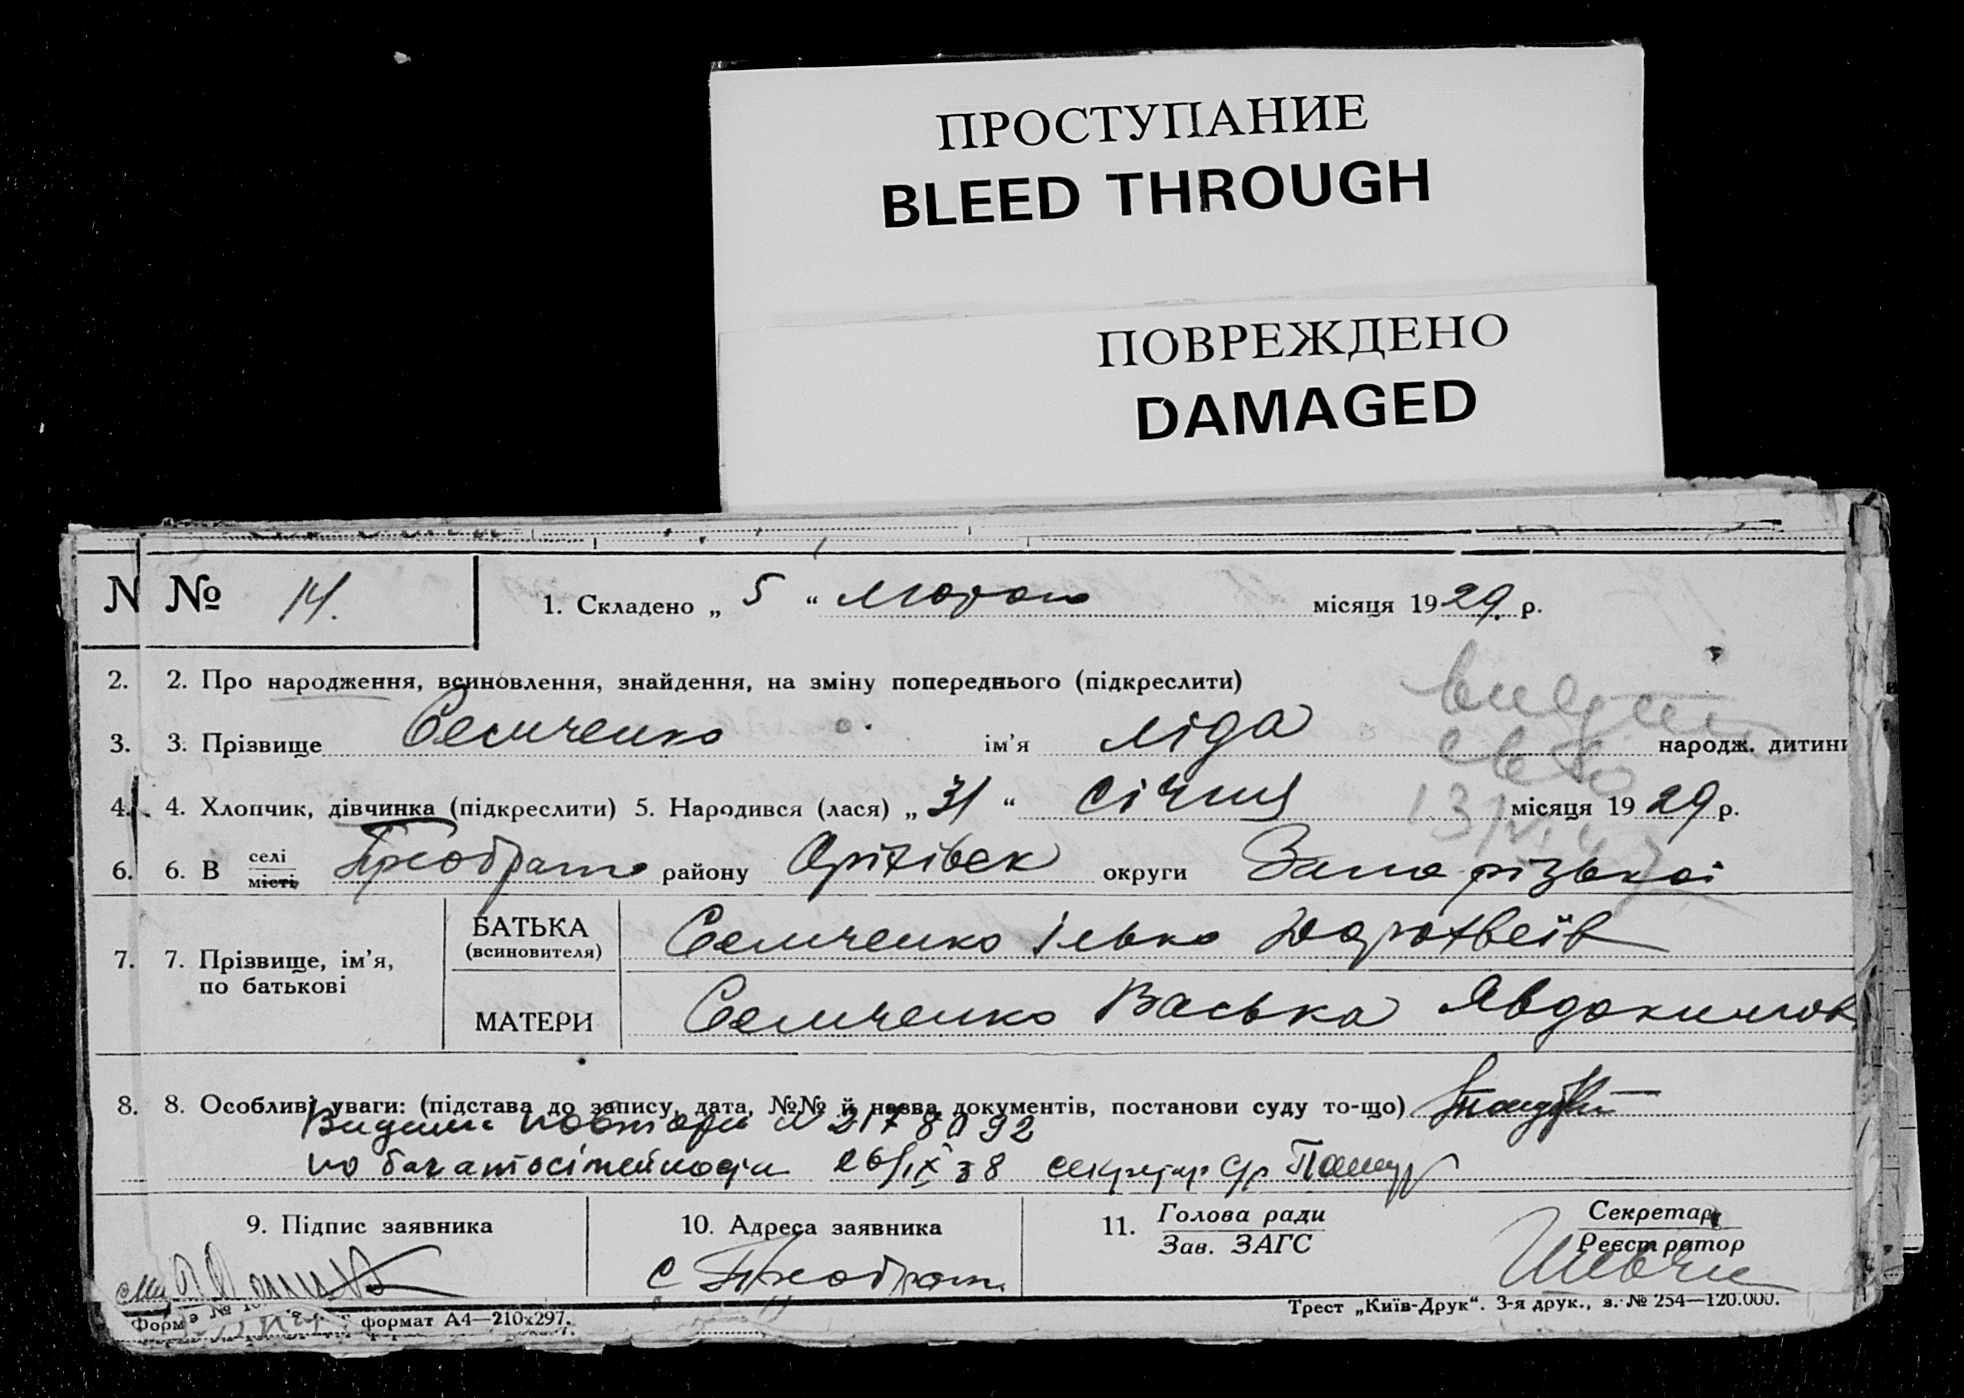 ПРОСТУПАНИЕ
BLEED THROUGH
ПОВРЕЖДЕНО
DAMAGED
N № 14. 1. Складено „ 5 “ лютого місяця 1929. р.
2. 2. Про народження, всиновлення, знайдення, на зміну попереднього (підкреслити)
3. 3. Прізвище Семченко ім’я Ліда народж. дитини
4. 4. Хлопчик, дівчинка (підкреслити) 5. Народився (лася) „ 31 “ січня місяця 1929 р.
6. 6. В селі
місті Преображ району Оріхівськ округи Запорізької
7. 7. Прізвище, ім’я,
по батькові
БАТЬКА
(всиновителя)
Семченко Ілько
МАТЕРИ
Семченко Васька Явдокимов
8. 8. Особливі уваги: (підстава до запису, дата, №№ й назва документів, постанови суду то-що)
по багатосімейности 26/IX 38 секретар с/р
9. Підпис заявника
10. Адреса заявника
с Преображ.
11. Голова ради
Зав. ЗАГС
Секретар
Реєстратор
Форм № формат А4—210х297.
Трест „Київ-Друк“. 3-я друк., з. № 254—120.000.